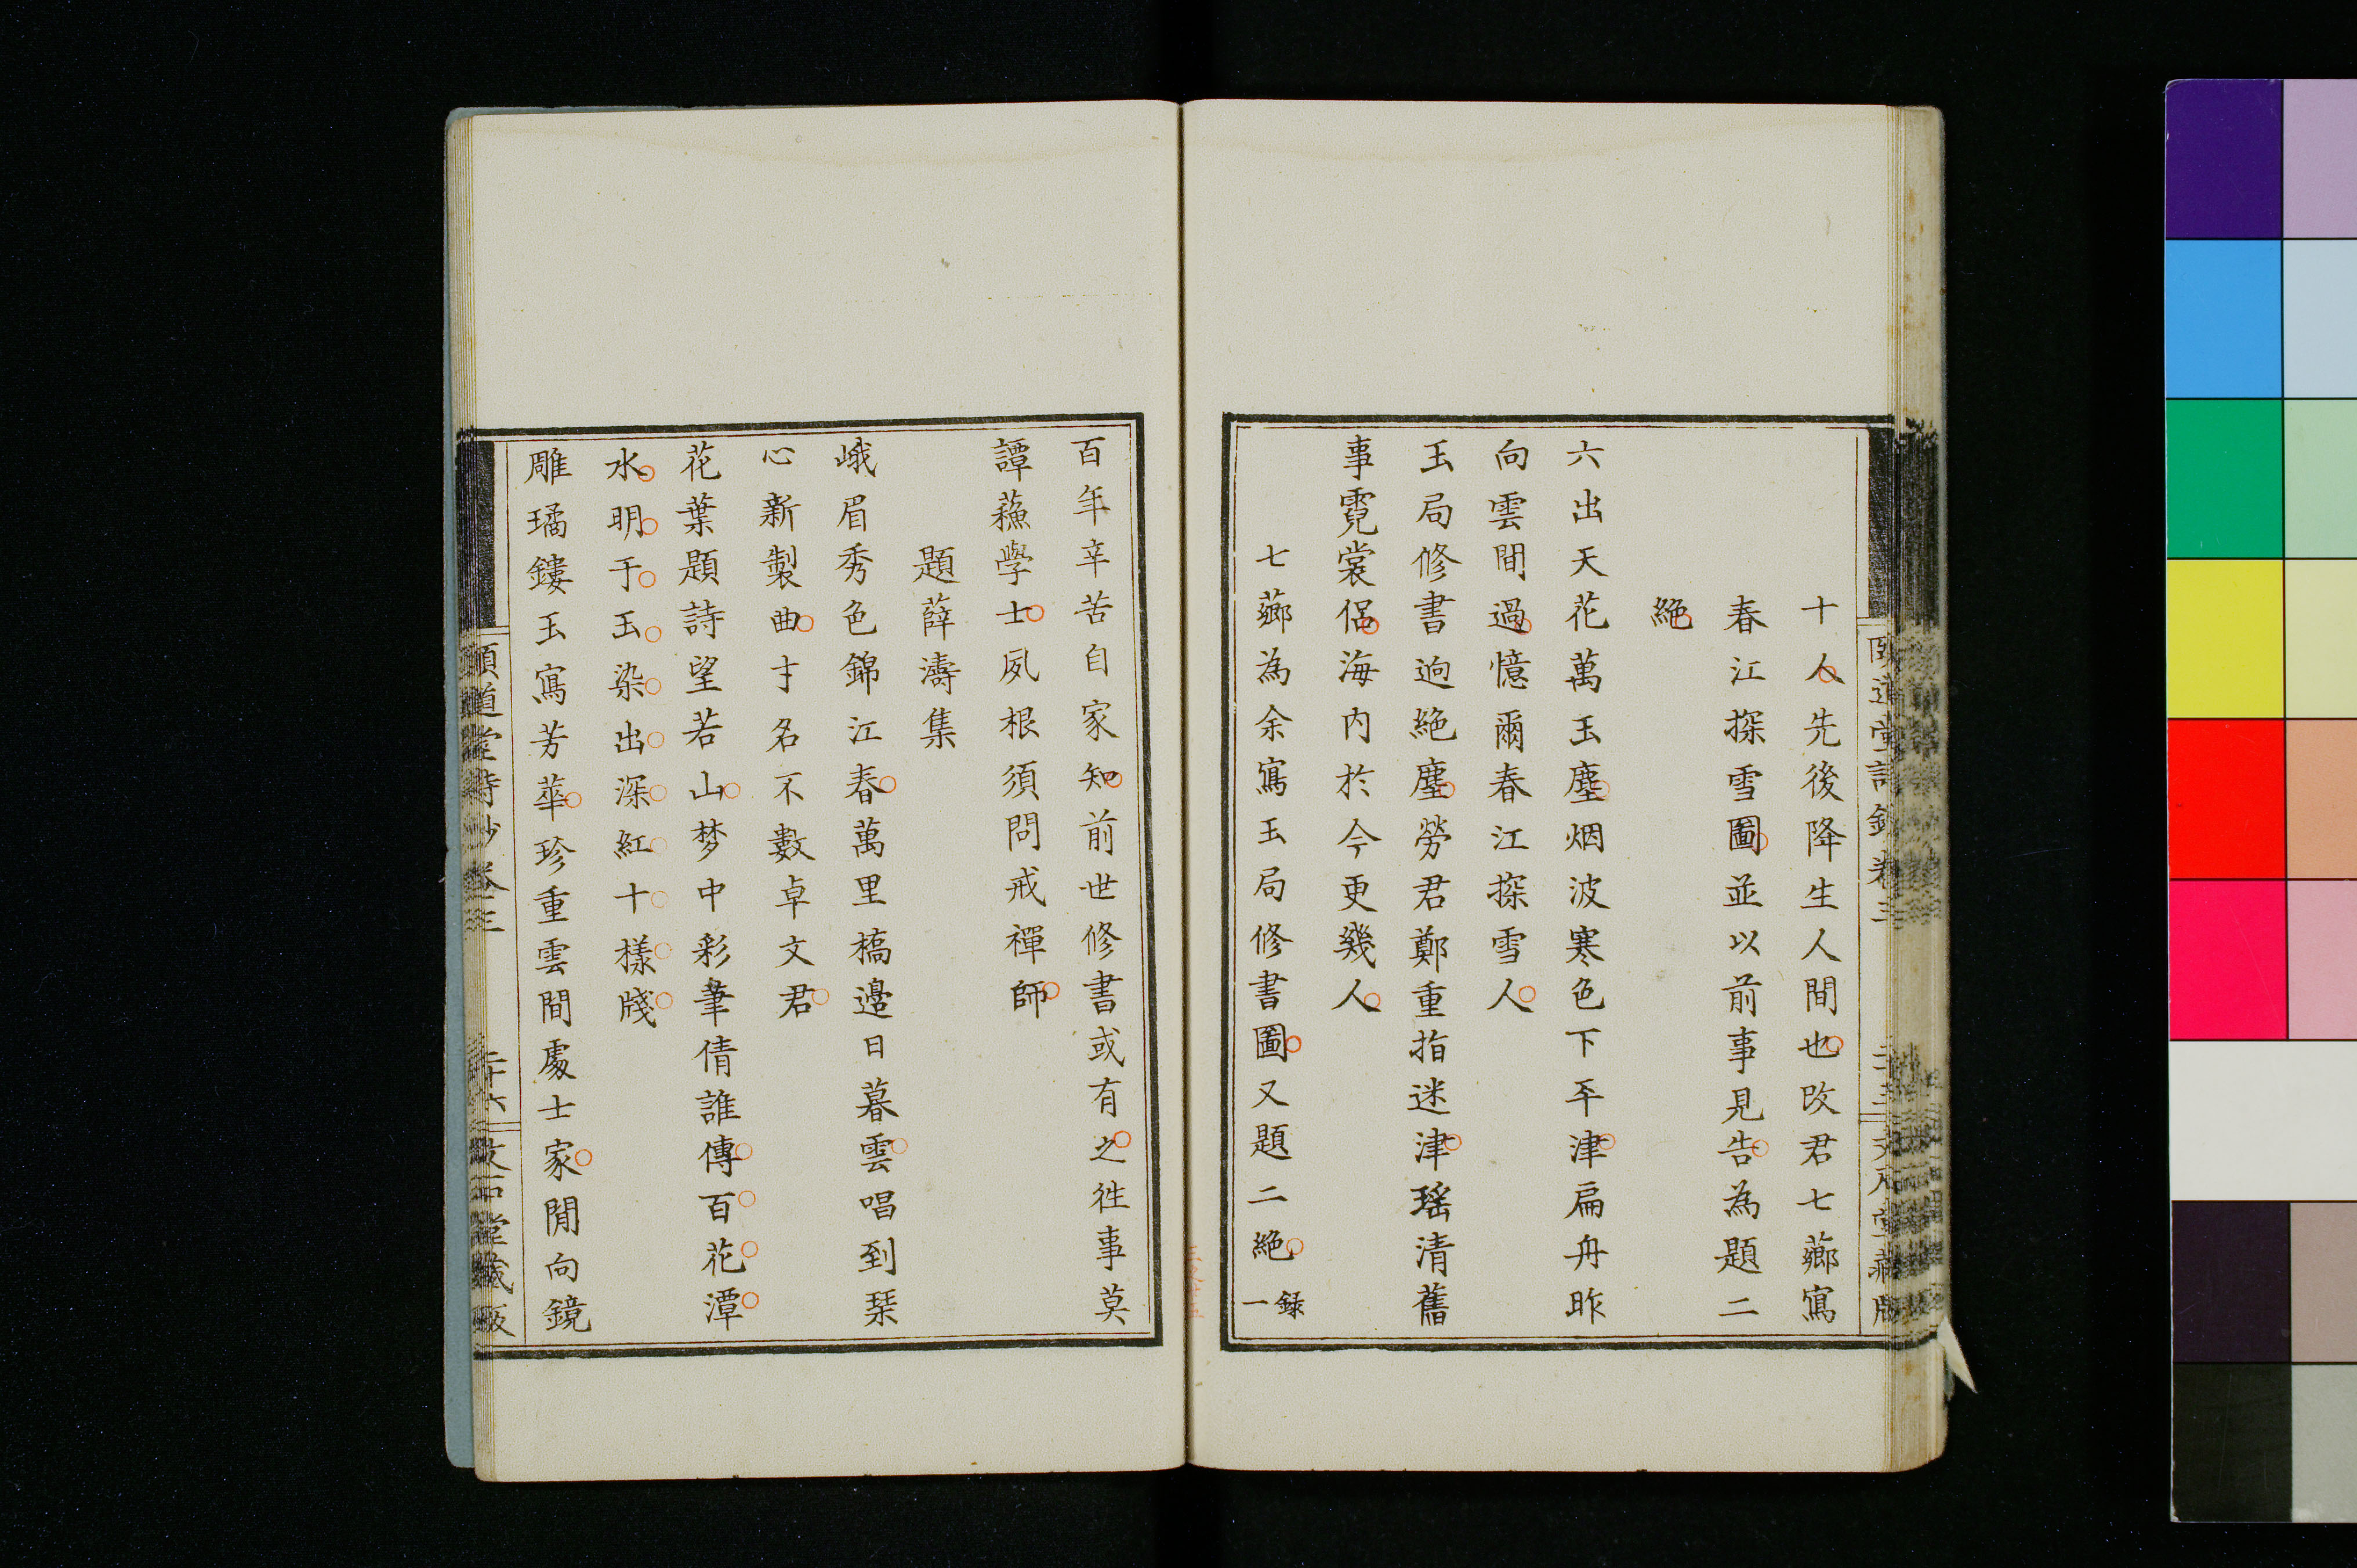 十人先後降生人間也改君七薌寫
春江探雪圖並以前事見告為題二
絕
六出天花萬玉塵烟波寒色下平津扁舟昨
向雲間過憶爾春江探雪人
玉局修書迥絕塵勞君鄭重指迷津瑤清舊
事霓裳侶海內於今更幾人
七薌為余寫玉局修書圖又題二絕錄一
百年辛苦自家知前世修書或有之徃事莫
譚蘓學士夙根須問戒禪師
題薛濤集
峨眉秀色錦江春萬里橋邊日暮雲唱到琹
心新製曲才名不數卓文君
花葉題詩望若山梦中彩筆倩誰傳百花潭
水明于玉染出深紅十樣牋
雕璚鏤玉寫芳華珍重雲間處士家閒向鏡
頤道堂詩鈔卷三
二十六